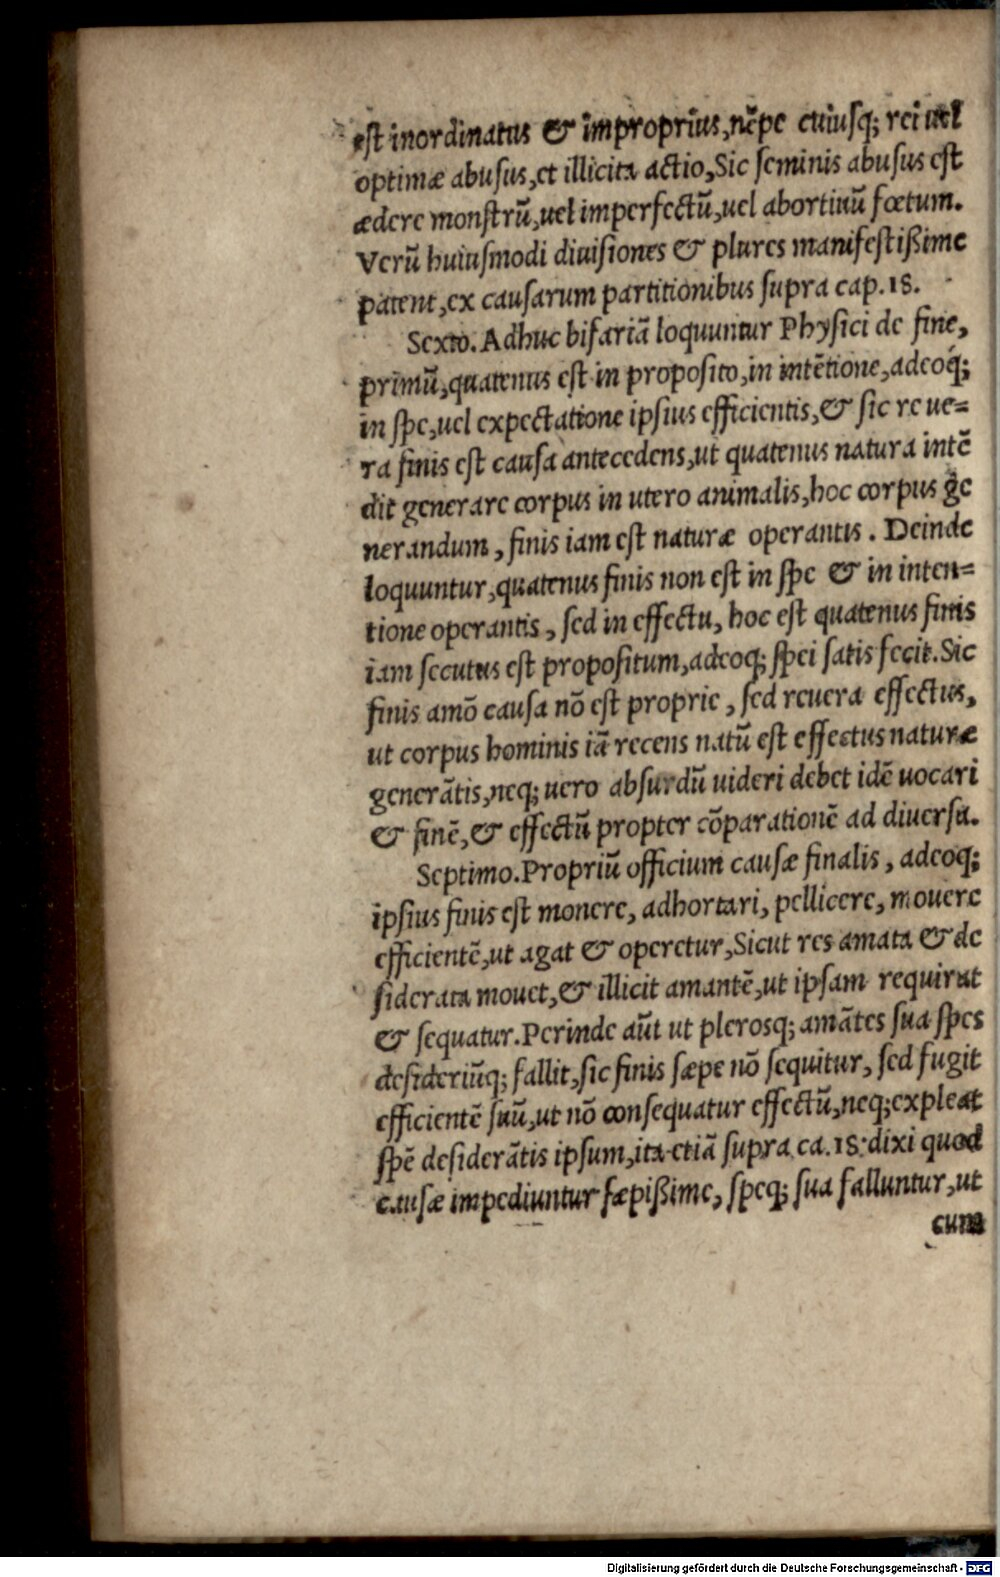 est inordinatus & improprius, nēpe cuiusq; rei uel
optimæ abusus, et illicita actio, Sic seminis abusus est
ædere monstrū, uel imperfectū, uel abortiuū fœtum.
Verū huiusmodi diuisiones & plures manifestißime
patent, ex causarum partitionibus supra cap. 18.
Sexto. Adhuc bifariā loquuntur Physici de fine,
primū, quatenus est in proposito, in intētione, adeoq́;
in spe, uel expectatione ipsius efficientis, & sic re ue=
ra finis est causa antecedens, ut quatenus natura intē
dit generare corpus in utero animalis, hoc corpus ge
nerandum, finis iam est naturæ operantis. Deinde
loquuntur, quatenus finis non est in spe & in inten=
tione operantis, sed in effectu, hoc est quatenus finis
iam secutus est propositum, adeoq; spei satis fecit. Sic
finis amō causa nō est proprie, sed reuera effectus,
ut corpus hominis iā recens natū est effectus naturæ
generātis, neq; uero absurdū uideri debet idē uocari
& finē, & effectū propter cōparationē ad diuersa.
Septimo. Propriū officium causæ finalis, adeoq;
ipsius finis est monere, adhortari, pellicere, mouere
efficientē, ut agat & operetur, Sicut res amata & de
siderata mouet, & illicit amantē, ut ipsam requirat
& sequatur. Perinde aūt ut plerosq; amātes sua spes
desideriūq; fallit, sic finis sæpe nō sequitur, sed fugit
efficientē suū, ut nō consequatur effectū, neq; expleat
spē desiderātis ipsum, ita etiā supra ca. 18. dixi quod
causæ impediuntur sæpißime, speq; sua falluntur, ut
cum
Digitalisierung gefördert durch die Deutsche Forschungsgemeinschaft - DFG